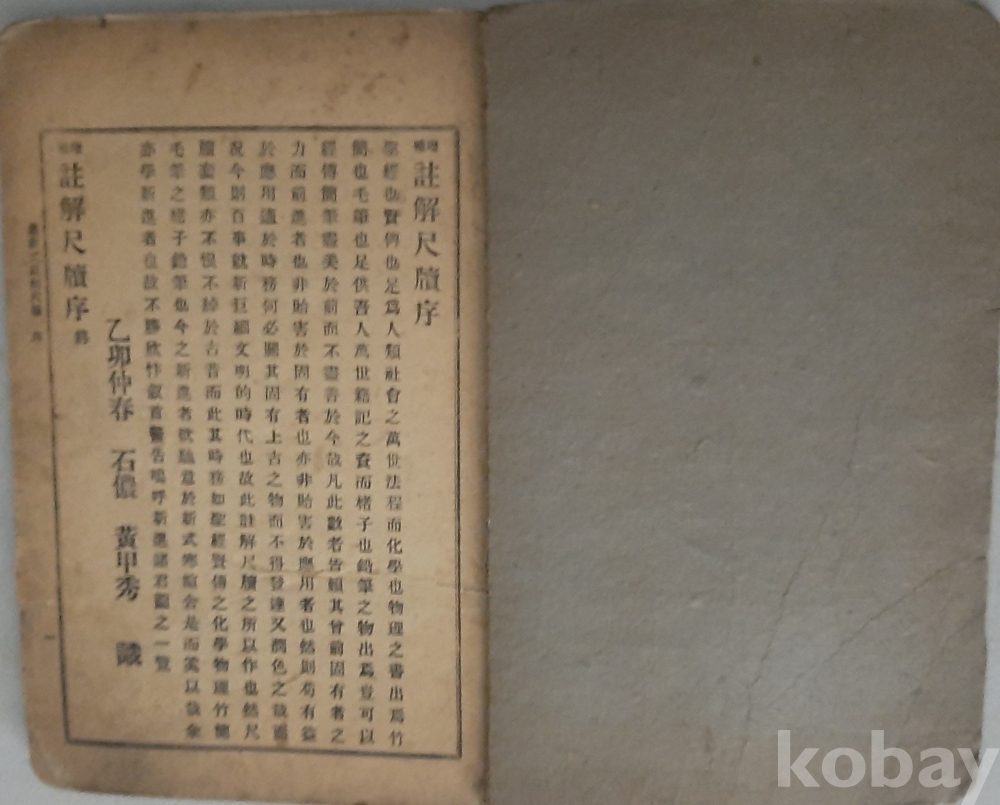 增補 註解尺牘序
聖經也賢傳也足爲人類社會之萬世法程而化學也物理之書出焉竹
簡也毛筆也足供吾人萬世籍記之資而楮子也鉛筆之物出焉豈可以
經傳簡筆盡美於前而不盡善於今哉凡此數者皆顧其曾前固有者之
力而前進者也非貽害於固有者也亦非貽害於應用者也然則苟有益
於應用適於時務何必關其固有上古之物而不得發達又潤色之哉
況今則百事就新巨細文明的時代也故此註解尺牘之所以作也然尺
牘套類亦不恨不綽於古昔而此其時務如聖經賢傳之化學物理竹簡
毛筆之楮子鉛筆也今之新進者欲 意於新式寒暄舍是而奚以哉余
亦學新進者也故不勝欣忭敍首警告嗚呼新進諸君觀之一覽
乙卯仲春 石儂 黃甲秀 識
增補 註解尺牘序 終